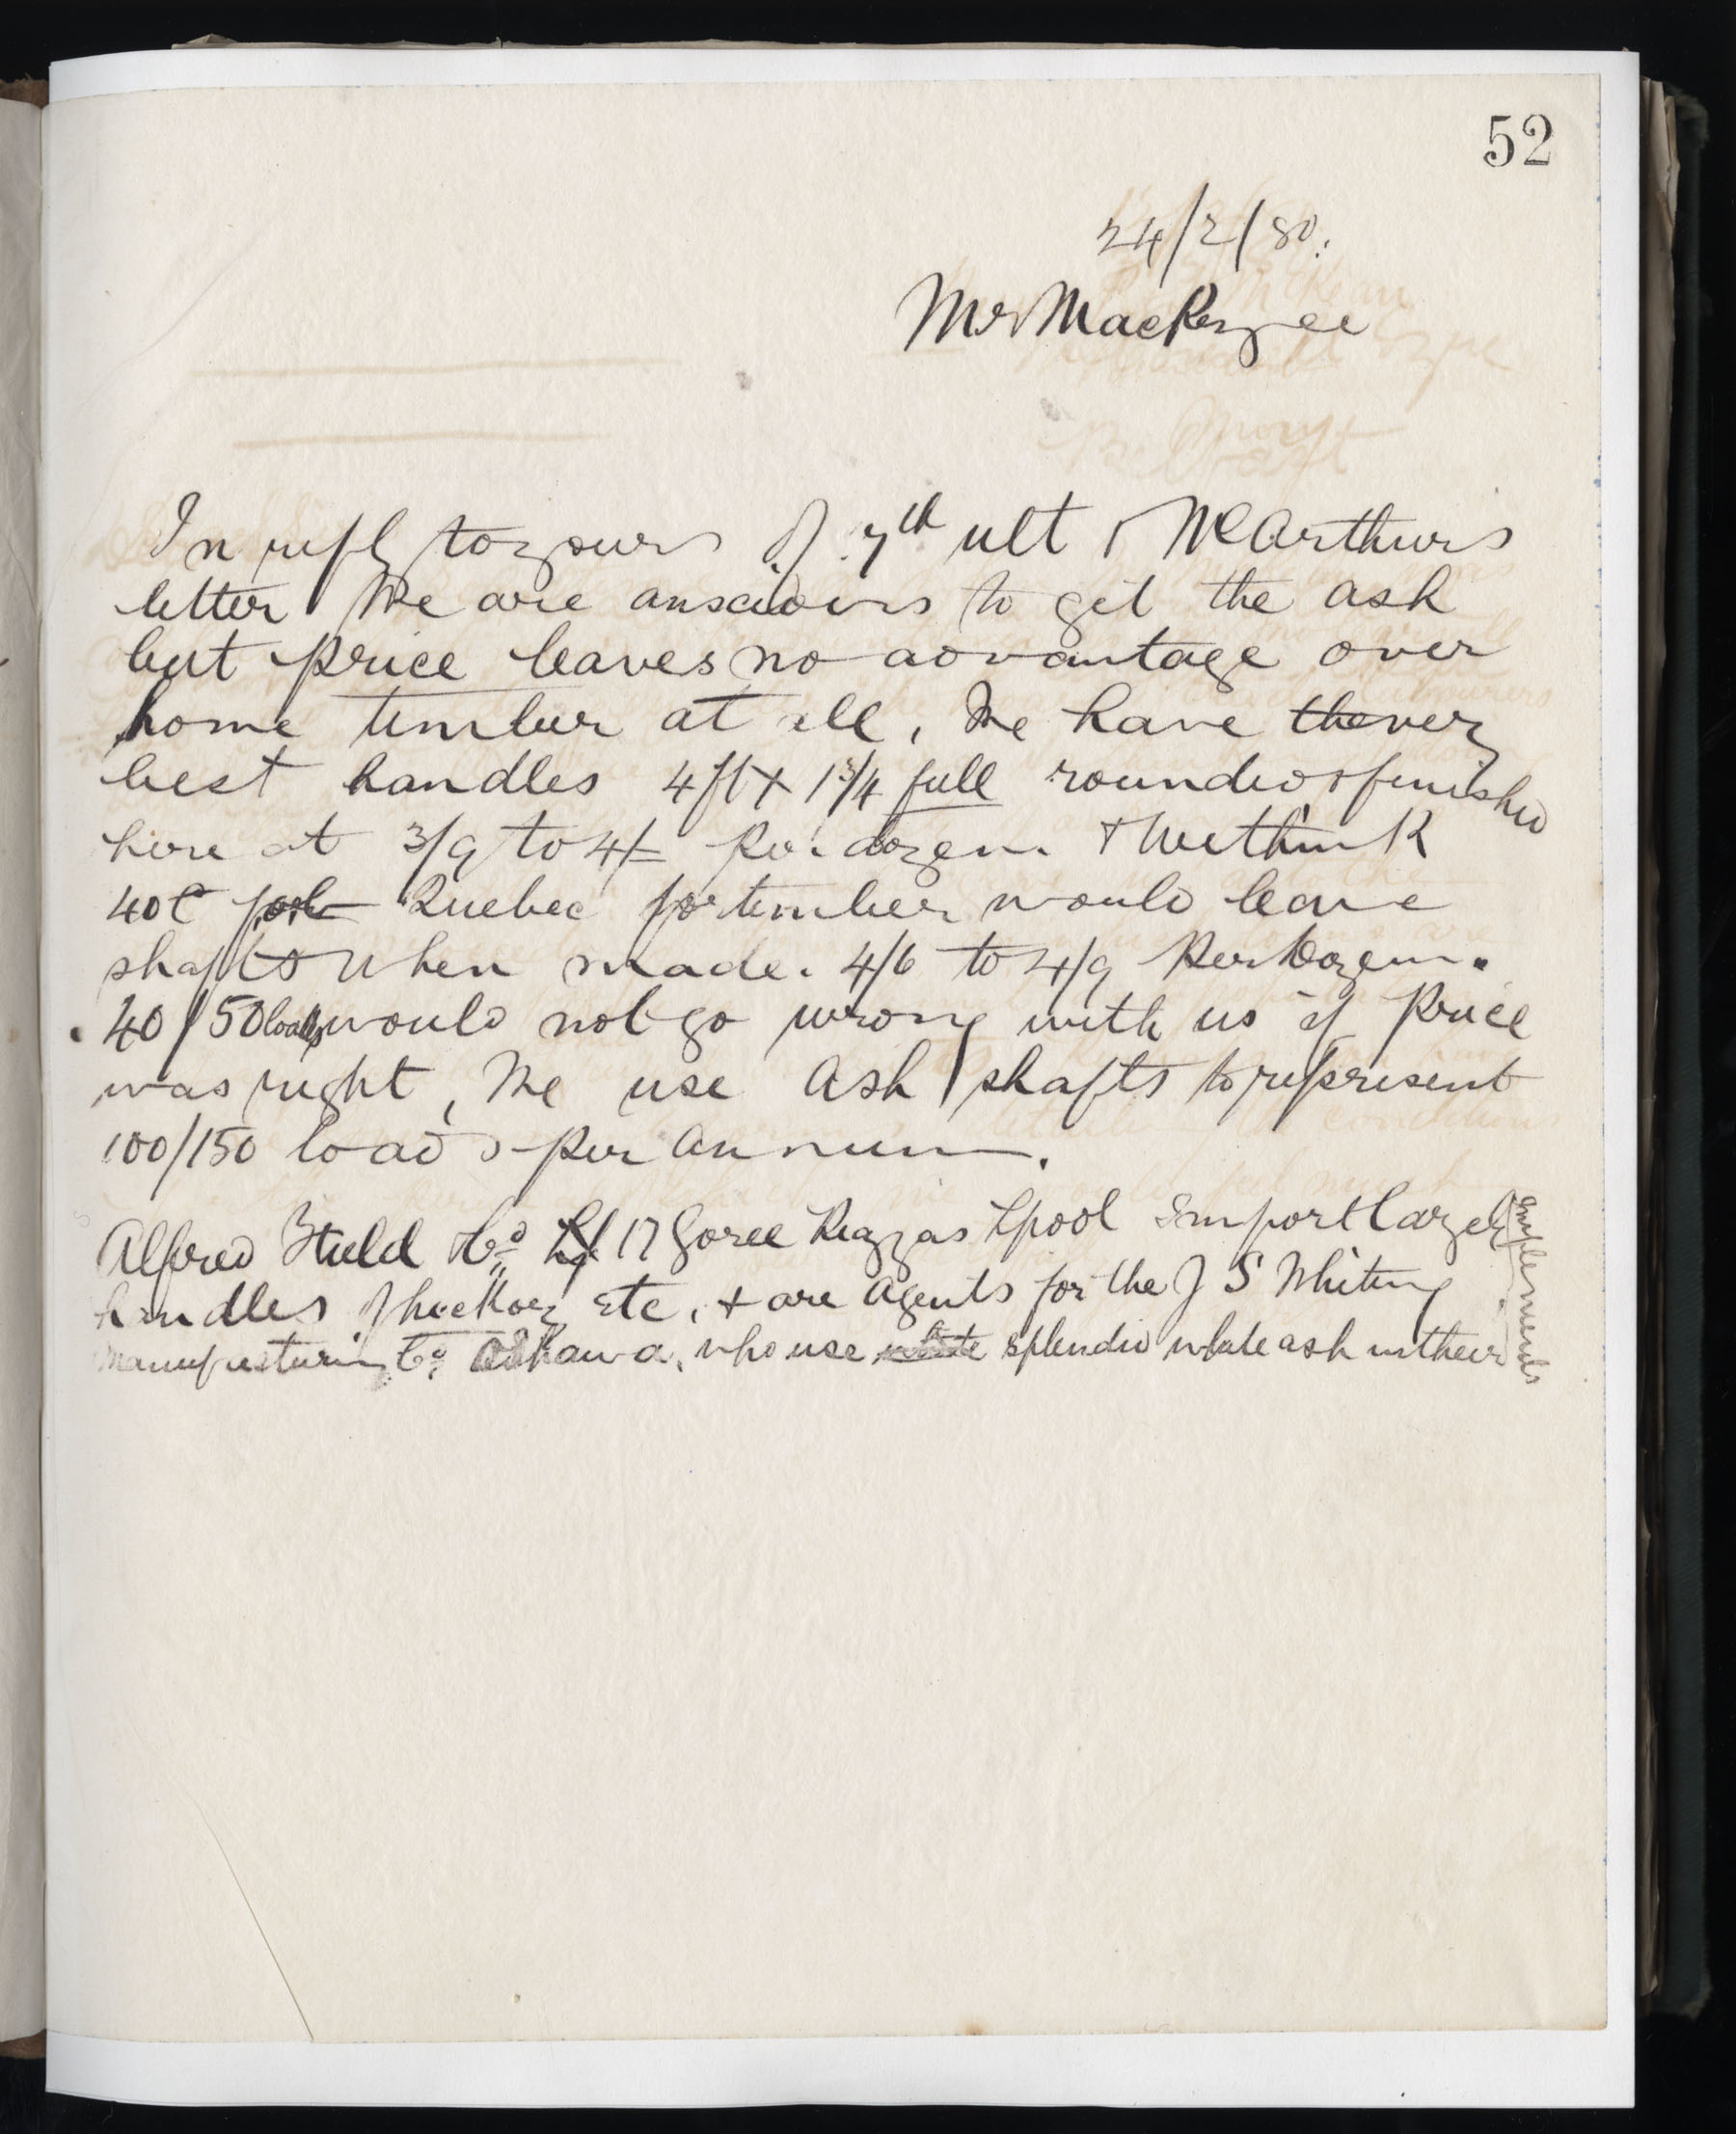 52
24/2/80.
Mr MacKenzie
In reply to yours of 7th ult & McArthurs
letter We are anxious to get the ash
but price leaves no advantage over
home timber at all, We have the very
best handles 4ft x 1 3/4 full rounded & finished
here at 3/9 to 4/= per dozen. & We think
40c Quebec for timber would leave
shafts when made. 4/6 to 4/9 Per Dozen.
40/50 loads would not go wrong with us if Price
was right, We use Ash shafts to represent
100/150 loads per annum.
Alfred Field & Co 17 Goree Piazzas Lpool Import largely
handles of hickory etc. + are Agents for the J S Whiting
Manufacturing Co Oshawa, who use splendid white ash in their
implements